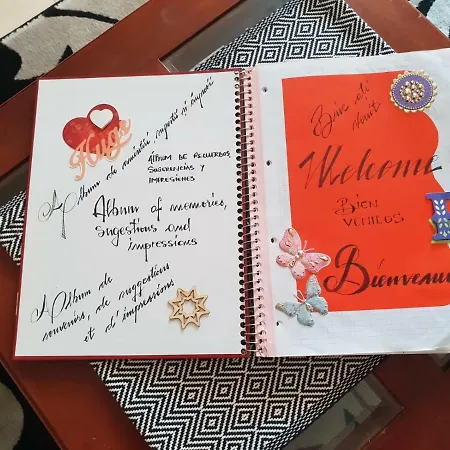 Hugs
Album de amintiri,
ALBUM DE RECUERDOS,
SUGERENCIAS Y
IMPRESIONES
Album of memories,
Sugestions and
impressions
Album de
souvenirs, de suggestions
et d'impressions
Bine ati
venit
Welcome
BIEN
VENIDOS
Bienvenue